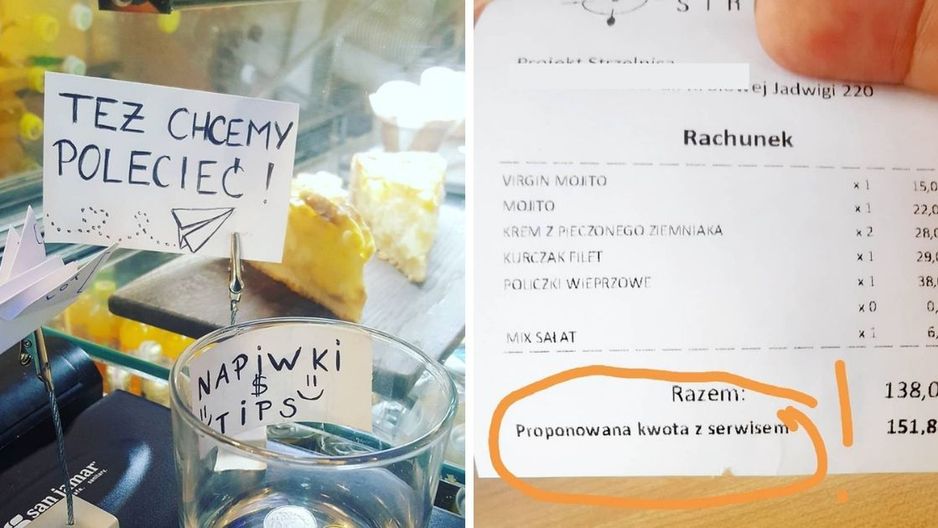 TEŻ CHCEMY
POLECIEĆ!
NAPIWKI
$
TIPS
san jamar
Projekt Strzelnica
Jadwigi 220
Rachunek
VIRGIN MOJITO x 1 15,0
MOJITO x 1 22,0
KREM Z PIECZONEGO ZIEMNIAKA x 2 28,0
KURCZAK FILET x 1 29,0
POLICZKI WIEPRZOWE x 1 38,
x 0 0,
MIX SAŁAT x 1 6,
Razem: 138,0
Proponowana kwota z serwisem 151,8
!